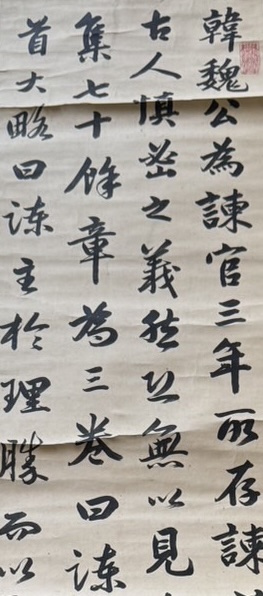 韓魏公為諫官三年所存諫
古人慎密之義然恐無以見
集七十餘章為三卷曰諫
首大略曰諫主於理勝而以